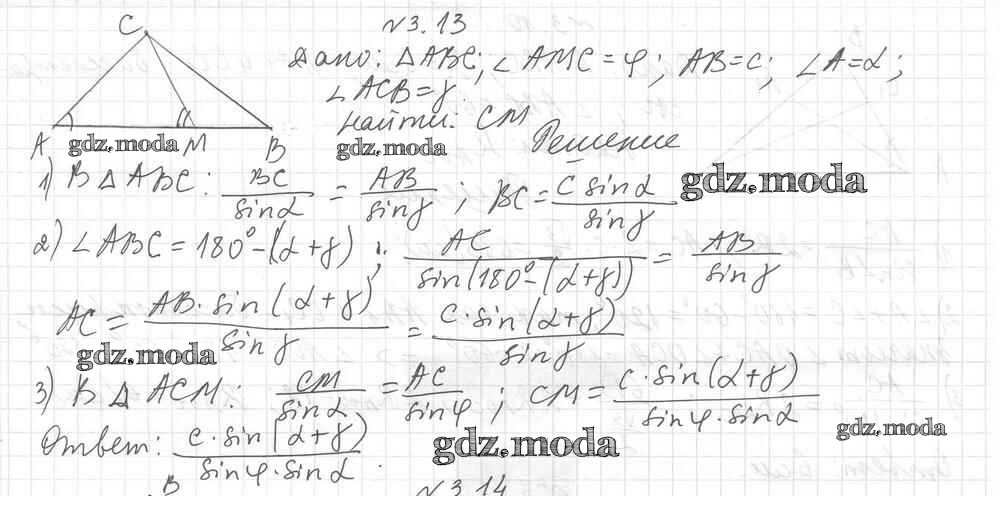 №3.13
C
Дано: △ABC; ∠AMC = φ; AB = c; ∠A = α;
∠ACB = γ
Найти: CM
A gdz.moda M B gdz.moda Решение
1) В △ABC: BC/sinα = AB/sinγ; BC = c sinα/sinγ gdz.moda
2) ∠ABC = 180° - (α + γ); AC/sin(180° - (α + γ)) = AB/sinγ
AC = AB · sin(α + γ)/sinγ = c · sin(α + γ)/sinγ
gdz.moda
3) В △ACM: CM/sinα = AC/sinφ; CM = c · sin(α + γ)/sinφ · sinα
gdz.moda
Ответ: c · sin(α + γ)/sinφ · sinα.
gdz.moda
B
№3.14